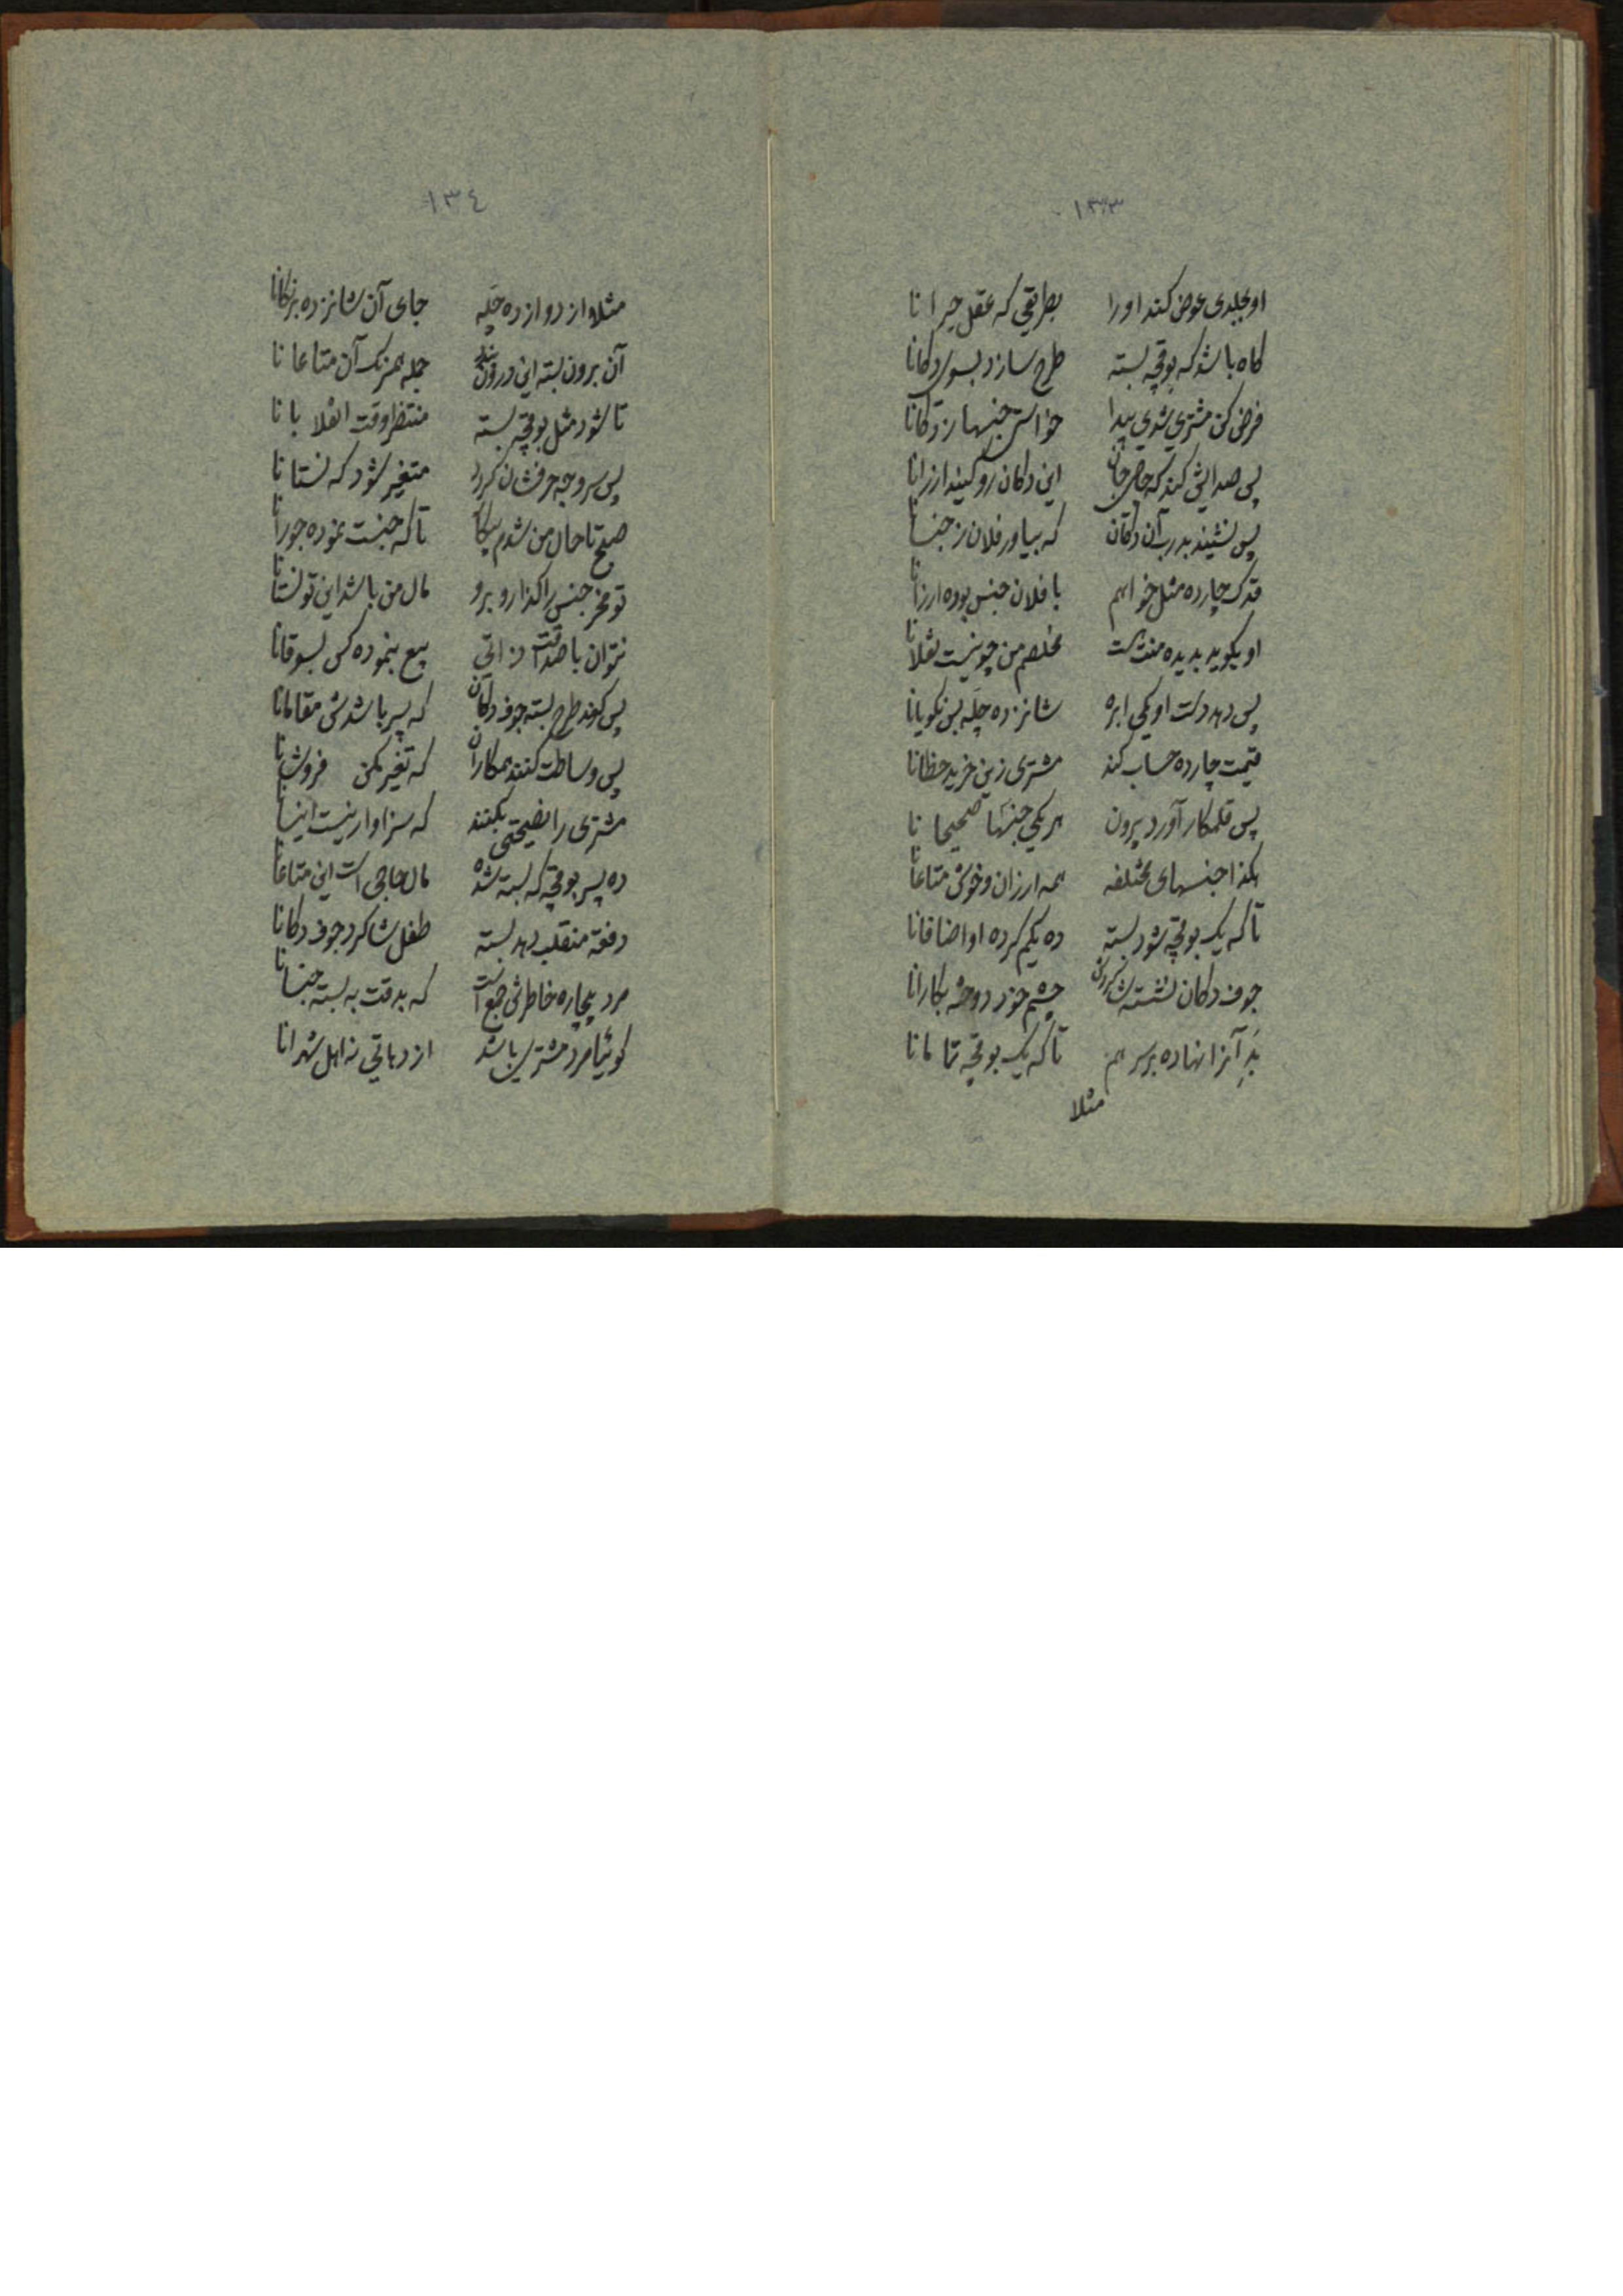 ١٣٣
او بجلدی عوض کند او را بطریقی که عقل حیرانا
کاه باشد که بوقچه بسته طرح سازد بسوی دکانا
فرض کن مشتری شدی پیدا خواستی جنسها ز دکانا
پس صدایش کند که حاجی جان این دکان رو کنید ارزانا
پس نشیند بدرب آن دکان که بیاور فلان ز جنسانا
قدک چارده مثل خواهم با فلان جنس بوده ارزانا
او بکوید بدیده منت است مخلصم من چو نیست نقلانا
پس دهد دست او یکی ابره شانزده چله بس نکویانا
قیمت چارده حساب کند مشتری زین خرید حظانا
پس قلمکار آورد بیرون هر یکی جنسها صحیحانا
هکذا جنسهای مختلفه همه ارزان و خوش متاعانا
تا که یک بوقچه شود بسته ده یکم کرده او اضافانا
جوف دکان نشسته شاکردش چشم خود دوخته بکارانا
بد آنرا نهاده بر سر هم تا که یک بوقچه تمامانا
مثلا
١٣٤
مثلا از دوازده چله جای آن شانزده برنکانا
آن برون بسته این درون جمله همرنک آن متاعانا
تا شود مثل بوقچه بسته منتظر وقت انقلابانا
پس سر وجه حرفشان کردد متغیر شود که نستانا
صبح تا حال من شدم تا که جنست نموده جورانا
تو مخر جنس را کذار و برو مال من باشد این تو نستانا
نتوان با صداقت ذاتی بیع بنموده کس بسوقانا
پس کوند طرح بسته جوف دکان که پسر باشدش مقامانا
پس وساطت کنند همکاران که تغیر مکن فروشانا
مشتری را نصیحتی بکنند که سزاوار نیست اینسانا
ده پسر بوقچه که بسته شده مال حاجی است این متاعانا
دفعة منقلب دهد بسته طفل شاکرد جوف دکانا
مرد بیچاره خاطرش جمع است که بدقت به بسته جنسانا
کوئیا مرد مشتری باشد از دهاتی نه اهل شهرانا